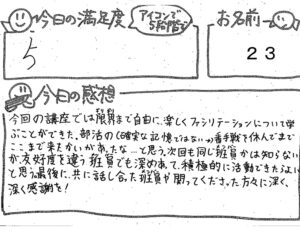 今日の満足度
アイコンで
5段階で
5
お名前
23
今日の感想
今回の講座では限界まで自由に、楽しくファシリテーションについて学
ぶことができた。部活の(確実な記憶ではないが)番手戦を休んでまで
ここまで来たかいがあったな…と思う。次回も同じ班員かは知らない
が、友好度を違う班員でも深めあって、積極的に活動できたらよい
と思う。最後に、共に話し合った班員や関ってくださった方々に深く、
深く感謝を!